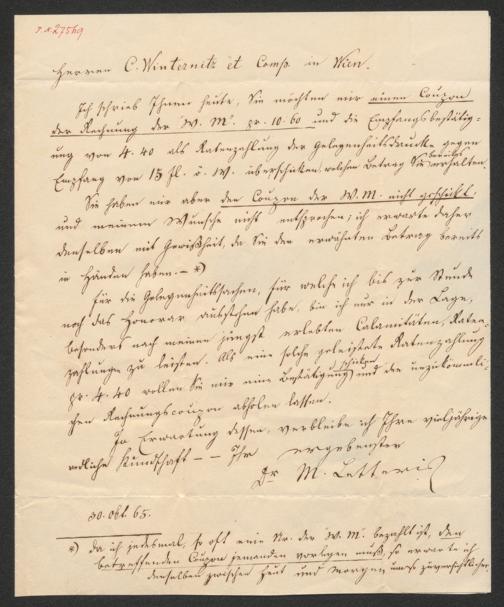 J.N. 27569
Herren C. Winternitz et Comp. in Wien.
Ich schrieb Ihnen heute, Sie möchten mir einen Coupon
der Rechnung der W. M. pr. 10.60 und die Empfangsbestätig-
ung von 4.40 als Ratenzahlung der Gelegenheitsdrucke gegen
Empfang von 15 fl. ö. W. überschicken, welchen Betrag Sie bereits erhalten.
Sie haben mir aber den Coupon der W. M. nicht geschickt,
und meinem Wunsche nicht entsprochen; ich erwarte daher
denselben mit Gewißheit, da Sie den erwähnten Betrag bereits
in Händen haben. – *)
Für die Gelegenheitssachen, für welche ich bis zur Stunde
noch das Honorar ausstehen habe, bin ich nur in der Lage,
besonders nach meinen jüngst erlebten Calamitäten, Raten-
zahlungen zu leisten. Als eine solche geleistete Ratenzahlung
pr. 4.40 wollen Sie mir eine Bestätigung schicken und den
chen Rechnungscoupon abholen lassen.
In Erwartung dessen, verbleibe ich Ihre vieljährige
redliche Kundschaft – – Ihr ergebenster
Dr M. Letteris
30. Okt. 65.
*) Da ich jedesmal, so oft eine No. der W. M. bezahlt ist, den
betreffenden Coupon jemanden vorlegen muß, so erwarte ich
denselben zwischen heut und morgen umso zuversichtlicher